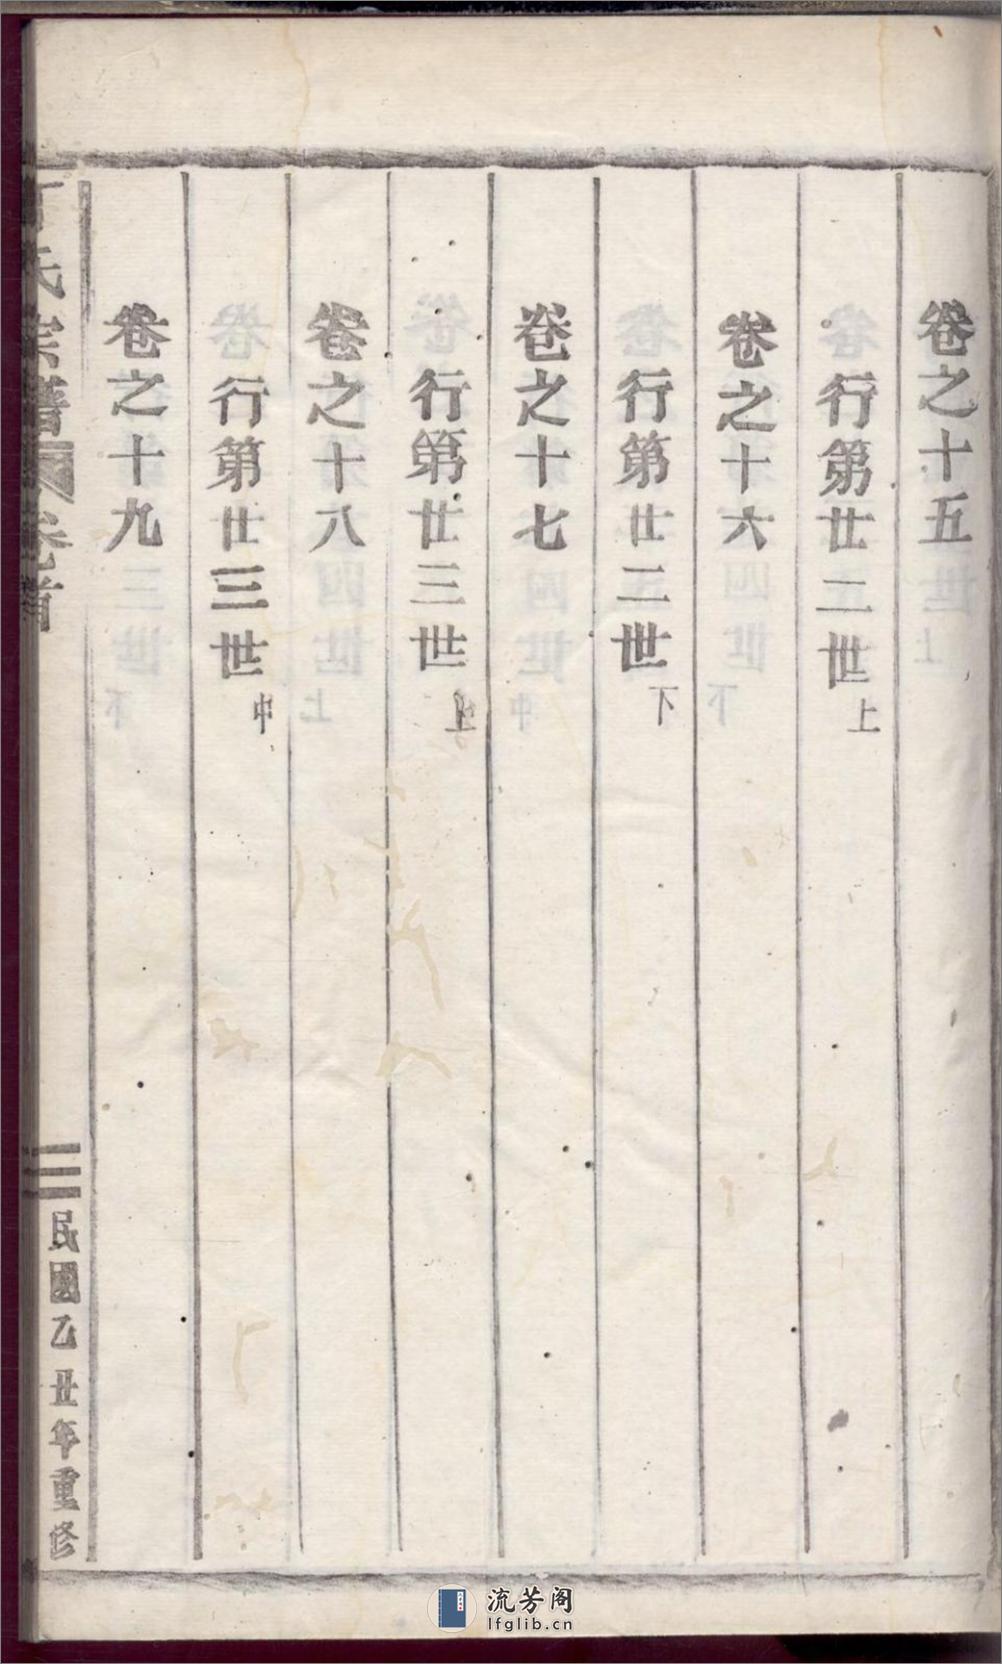 卷之十五
行第廿二世上
卷之十六
行第廿二世下
卷之十七
行第廿三世上
卷之十八
行第廿三世中
卷之十九
丁氏宗譜 卷首
三 民國乙丑年重修
流芳阁
lfglib.cn